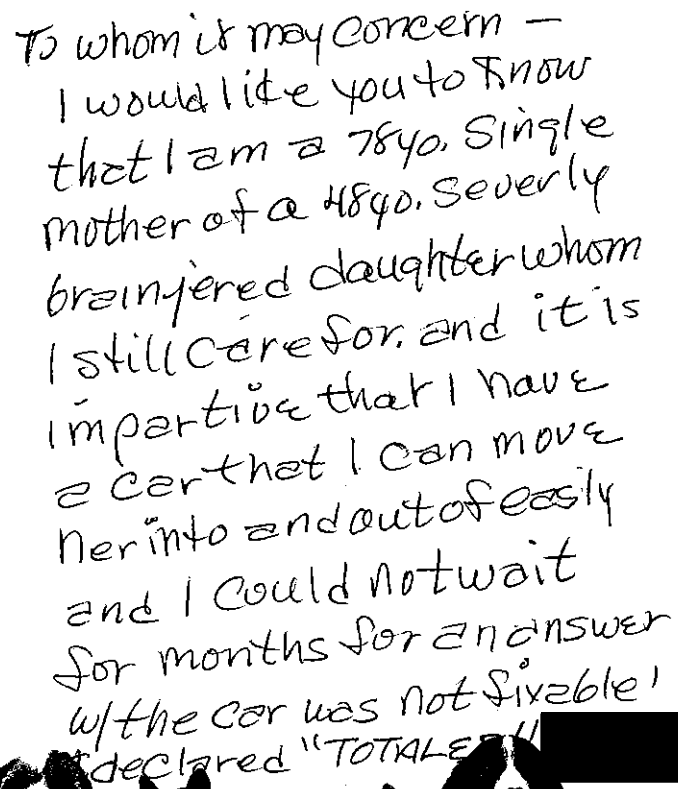 To whom it may concern —
I would like you to know
that I am a 78yo. Single
mother of a 48yo. Severly
brainjered daughter whom
I still care for. and it is
impartive that I have
a car that I can move
her into and out of easily
and I could not wait
for months for an answer
w/ the car was not fixable'
declared "TOTALED"